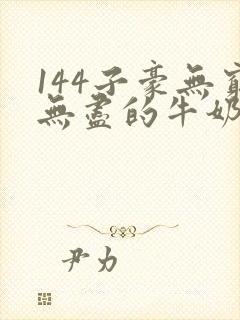 144子豪無窮
無盡的牛奶
尹力